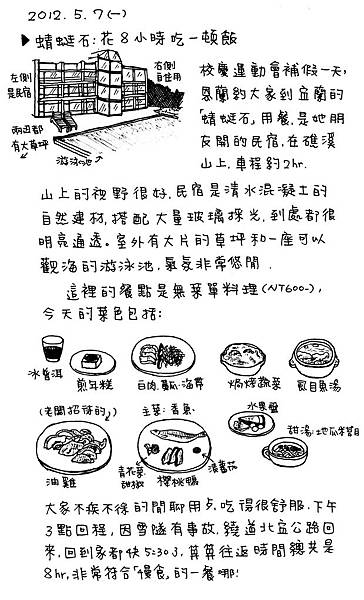 2012.5.7(一)
▶蜻蜓石:花8小時吃一頓飯
左側
是民宿
右側
自住用
兩邊都
有大草坪
游泳池
校慶運動會補假一天,
恩蘭約大家到宜蘭的
「蜻蜓石」用餐,是她朋
友開的民宿,在礁溪
山上,車程約2hr.
山上的視野很好,民宿是清水混凝土的
自然建材,搭配大量玻璃採光,到處都很
明亮通透。室外有大片的草坪和一座可以
觀海的游泳池,氣氛非常悠閒.
這裡的餐點是無菜單料理(NT600-),
今天的菜色包括:
冰醋洱
煎年糕
白肉、鳳瓜、海蜇
焗烤蔬菜
虱目魚湯
(老闆招待的)
油雞
主菜:香魚
青花菜
甜椒
櫻桃鴨
溏番茄
水果盤
甜湯:地瓜芋圓
大家不疾不徐的閒聊用歺,吃得很舒服.下午
3點回程,因雪隧有事故,繞道北宜公路回
來,回到家都快5:30了,算算往返時間總共是
8hr,非常符合「慢食」的一餐哪!